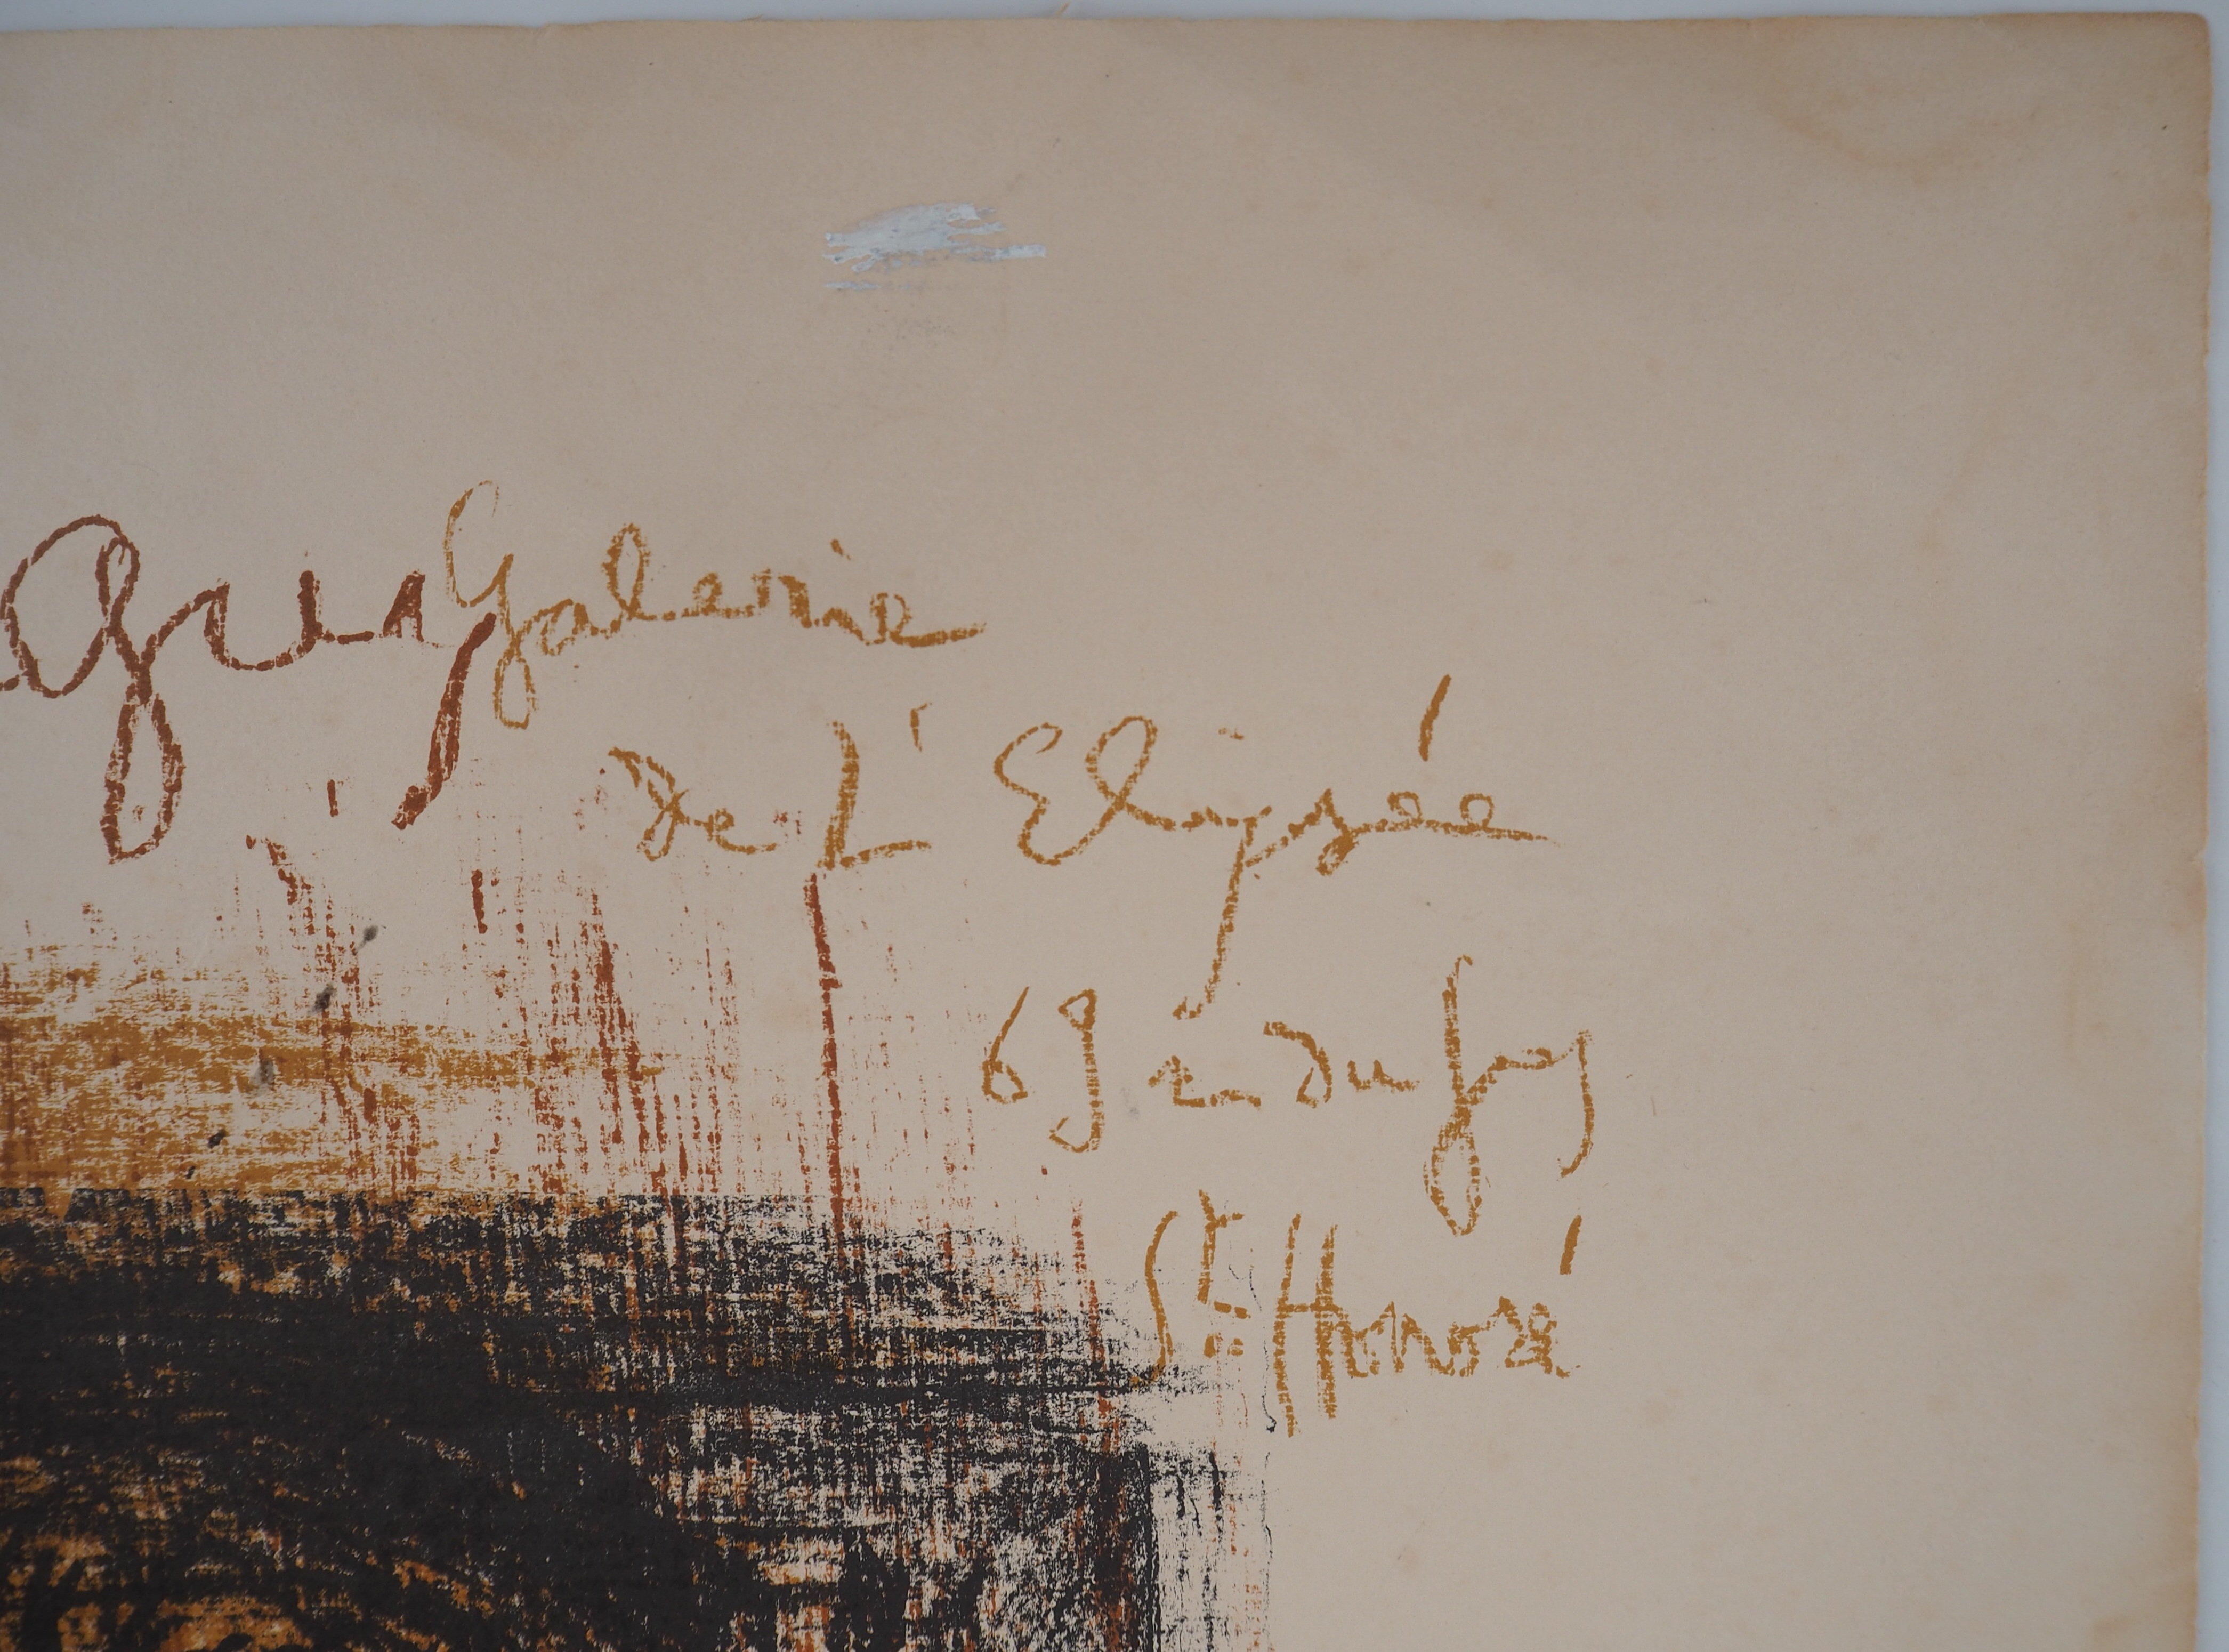 Galerie
de L'Elysée
69 R du fg
St Honoré